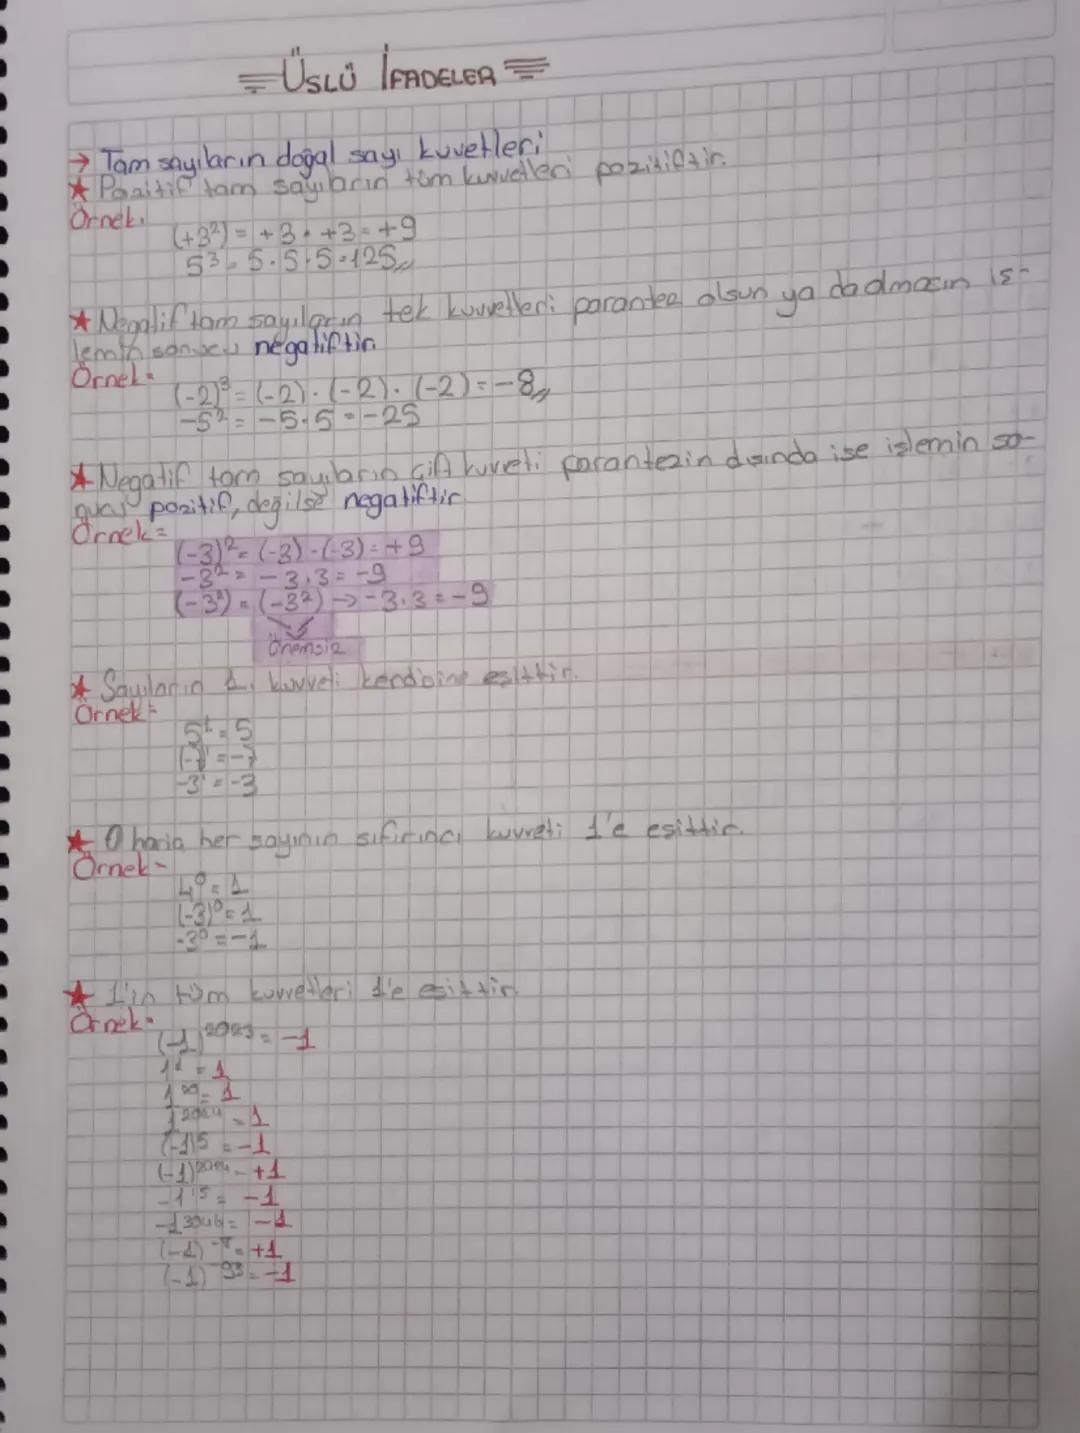 ÜSLÜ İFADELER
→ Tam sayıların doğal sayı kuvvetleri
★ Pozitif tam sayıların tüm kuvvetleri pozitiftir.
Örnek:
(+3²) = +3 · +3 = +9
5³ = 5·5·5=125
★ Negatif tam sayıların tek kuvvetleri parantez olsun ya da olmasın iş-
lemin sonucu negatiftir
Örnek=
(-2)³ = (-2)·(-2)·(-2) = -8
-5² = -5·5 = -25
★ Negatif tam sayıların çift kuvveti parantezin dışında ise işlemin so-
nucu pozitif, değilse negatiftir
Örnek=
(-3)² = (-3)·(-3) = +9
-3² = -3·3 = -9
(-3²) = (-3²) → -3·3 = -9
Önemsiz
★ Sayıların 1. kuvveti kendisine eşittir.
Örnek=
5¹ = 5
-3¹ = -3
★ 0 hariç her sayının sıfırıncı kuvveti 1'e eşittir.
Örnek=
4⁰ = 1
(-3)⁰ = 1
-3⁰ = -1
★ 1'in tüm kuvvetleri 1'e eşittir.
Örnek=
(-1)²⁰²³ = -1
= 1
= 1
1²⁰²⁴ = 1
(-1)⁵ = -1
(-1)²⁰²⁴ = +1
-1¹⁵ = -1
-1³⁰⁴⁶ = -1
(-1) = +1
(-1)⁻⁹³ = -1